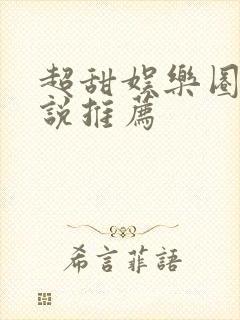 超甜娛樂圈
說推薦
希言菲語